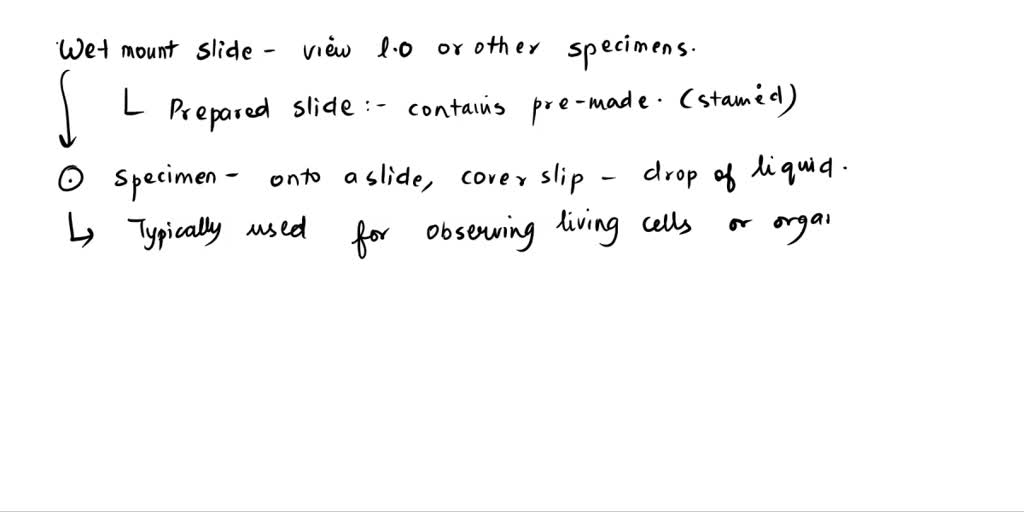 Wet mount slide - view l.o or other specimens.
Prepared slide :- contains pre-made. (stained)
specimen - onto a slide, cover slip - drop of liquid.
Typically used for observing living cells or orgai